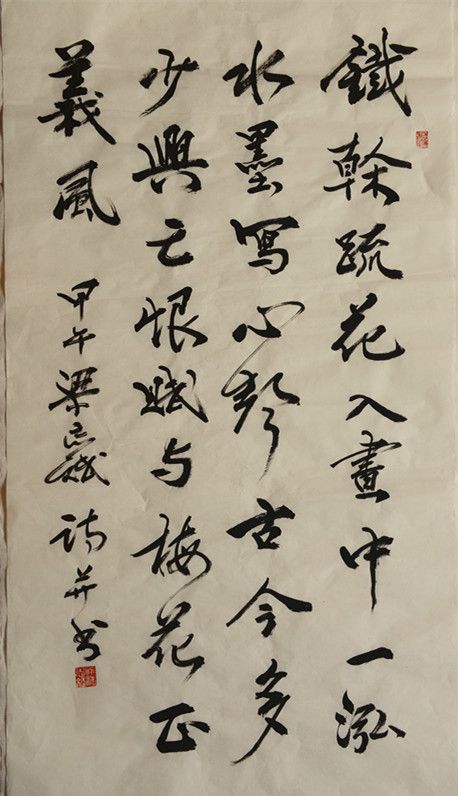 鐵榦疏花入畫中一泓
水墨寫心聲古今多
少興亡恨賦與梅花正
義風
甲午梁詩并書